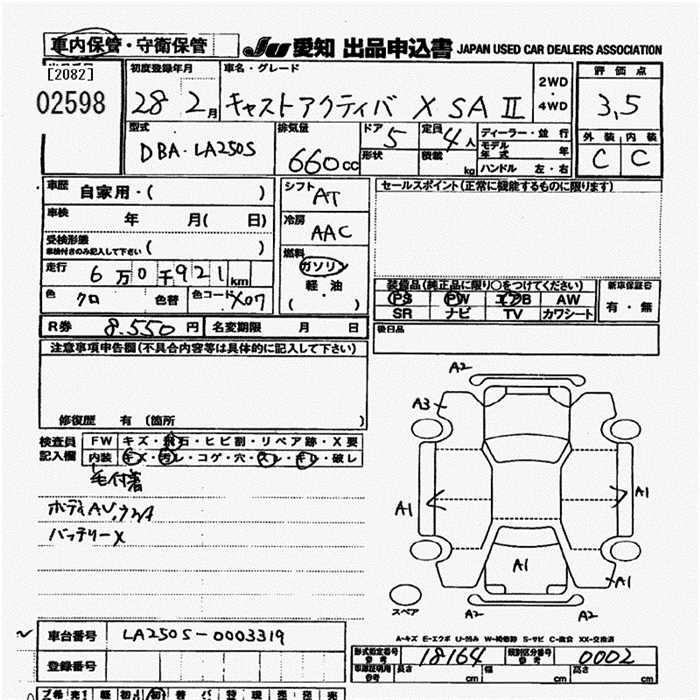 車内保管・守衛保管 JU 愛知 出品申込書 JAPAN USED CAR DEALERS ASSOCIATION
[2082]
02598
初度登録年月 車名・グレード 2WD 評価点
28 2月 キャストアクティバ X SA II 4WD 3.5
型式 排気量 ドア 5 定員 4人 ディーラー・並行 外装 内装
DBA-LA250S 660cc 形状 積載 kg モデル年式 年 C C
ハンドル 左・右
車歴 自家用・( ) シフト AT セールスポイント(正常に機能するものに限ります)
車検 年 月( 日) 冷房 AAC
受検形態
車検付きのみ記入して下さい ( ) 燃料
走行 6万0千921km ガソリン 装備品(純正品に限り○をつけてください) 新車保証書
色 クロ 色替 色コード X07 軽油 ( ・ ) PS PW エアB AW 有・無
SR ナビ TV カワシート
R券 8.550円 名変期限 月 日 後日品
注意事項申告欄(不具合内容等は具体的に記入して下さい)
修復歴 有 (箇所 )
検査員 FW キズ・飛石・ヒビ割・リペア跡・X要
記入欄 内装 キズ・汚レ・コゲ・穴・スレ・キレ・破レ
毛付着
ボディAU,ウスA
バッテリーX
A2
A3
A1 A1
A1
A1
スペア A2 A2
A-キズ E-エクボ U-凹み W-補修跡 S-サビ C-腐食 XX-交換済
車台番号 LA250S-0003319
登録番号
形式指定番号 参考 18164 類別区分番号 参考 0002
車庫証明用 参考 長さ cm 幅 cm 高さ cm